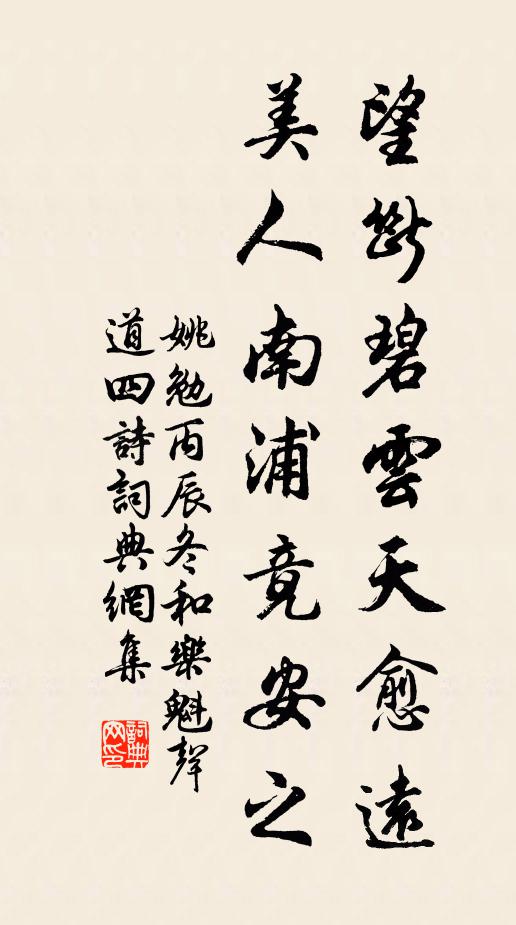 望斷碧雲天愈遠
美人南浦竟安之
姚勉丙辰冬和樂魁聲
道四詩詞典網集
詞典網印